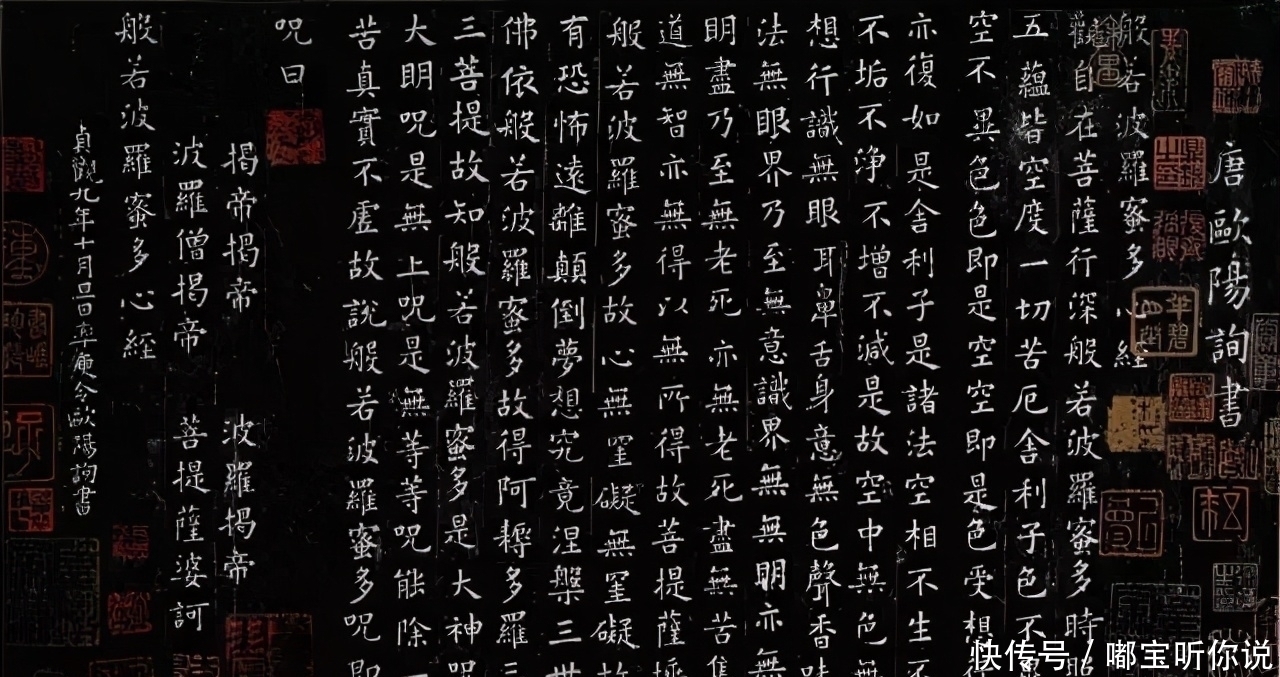 唐歐陽詢書
般若波羅蜜多心經
觀自在菩薩行深般若波羅蜜多時照
五蘊皆空度一切苦厄舍利子色不異
空不異色色即是空空即是色受想行
亦復如是舍利子是諸法空相不生不
不垢不淨不增不減是故空中無色無
想行識無眼耳鼻舌身意無色聲香味
法無眼界乃至無意識界無無明亦無
明盡乃至無老死亦無老死盡無苦集
道無智亦無得以無所得故菩提薩埵
般若波羅蜜多故心無罣礙無罣礙故
有恐怖遠離顛倒夢想究竟涅槃三世
佛依般若波羅蜜多故得阿耨多羅三
三菩提故知般若波羅蜜多是大神咒
大明咒是無上咒是無等等咒能除一
苦真實不虛故說般若波羅蜜多咒即
咒曰
揭帝揭帝 波羅揭帝
波羅僧揭帝 菩提薩婆訶
般若波羅蜜多心經
貞觀九年十月旦日率更令歐陽詢書
快传号/嘟宝听你说